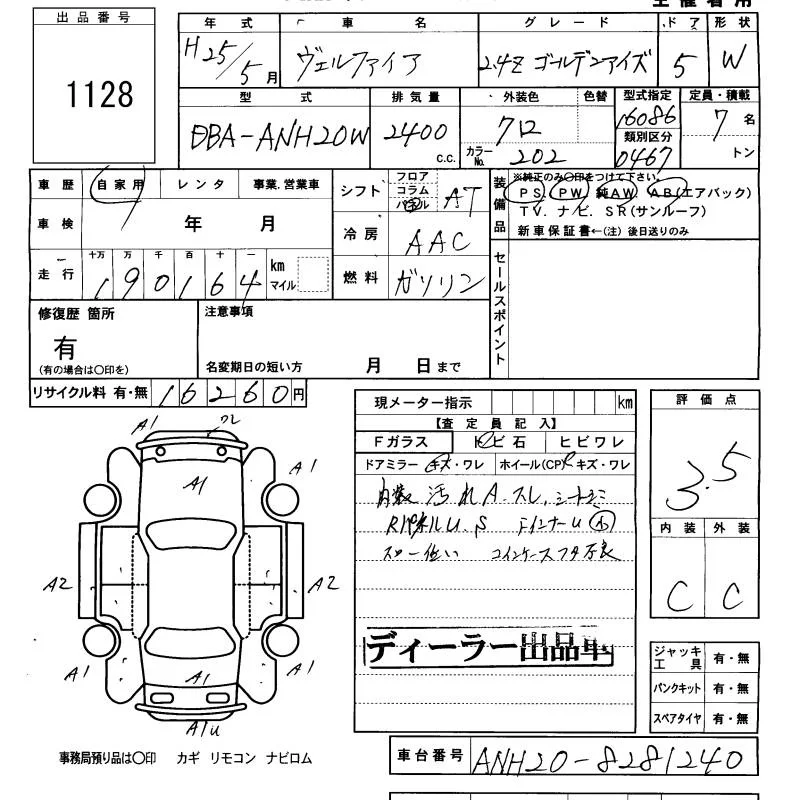 出品番号
1128
年式 車名 グレード ドア 形状
H25/5月 ヴェルファイア 2.4Z ゴールデンアイズ 5 W
型式 排気量 外装色 色替 型式指定 定員・積載
DBA-ANH20W 2400 c.c. クロ 16086 7名
カラーNo. 202 類別区分 0467 トン
車歴 自家用 レンタ 事業.営業車
車検 年 月
走行 十万 万 千 百 十 一
190164 km マイル
シフト フロア コラム AT
冷房 AAC
燃料 ガソリン
装備品 ※純正のみ〇印をつけて下さい。
PS. PW. 純AW. AB(エアバック)
TV. ナビ. SR(サンルーフ)
新車保証書←(注) 後日送りのみ
セールスポイント
修復歴 箇所
有
(有の場合は〇印を)
注意事項
名変期日の短い方 月 日まで
リサイクル料 有・無 16260円
現メーター指示 km
【査定員記入】
Fガラス トビ石 ヒビワレ
ドアミラー キズ・ワレ ホイール(CP) キズ・ワレ
汚れ A.スレ.
コインケースフタ不良
ディーラー出品車
評価点
3.5
内装 外装
C C
ジャッキ工具 有・無
パンクキット 有・無
スペアタイヤ 有・無
A1
A1
A1
A1
A2
A2
A1
A1
A1
A1u
事務局預り品は〇印 カギ リモコン ナビロム
車台番号 ANH20-8281240